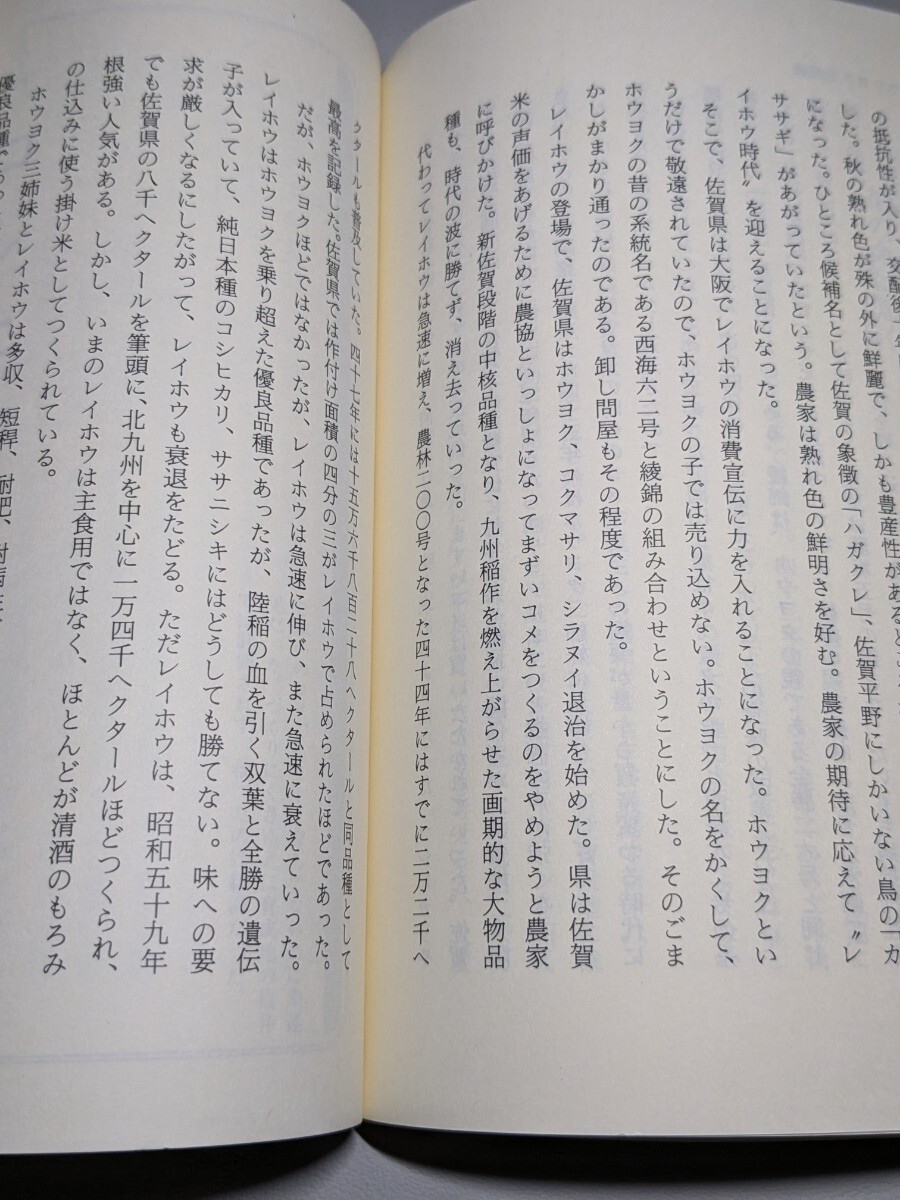 の抵抗性が入り、交配後
した。秋の熟れ色が殊の外に鮮麗で、しかも豊産性があると
になった。ひところ候補名として佐賀の象徴の「ハガクレ」、佐賀平野にしかいない鳥の「カ
ササギ」があがっていたという。農家は熟れ色の鮮明さを好む。農家の期待に応えて〝レ
イホウ時代〟を迎えることになった。
そこで、佐賀県は大阪でレイホウの消費宣伝に力を入れることになった。ホウヨクとい
うだけで敬遠されていたので、ホウヨクの子では売り込めない。ホウヨクの名をかくして、
ホウヨクの昔の系統名である西海六二号と綾錦の組み合わせということにした。そのごま
かしがまかり通ったのである。卸し問屋もその程度であった。
レイホウの登場で、佐賀県はホウヨク、コクマサリ、シラヌイ退治を始めた。県は佐賀
米の声価をあげるために農協といっしょになってまずいコメをつくるのをやめようと農家
に呼びかけた。新佐賀段階の中核品種となり、九州稲作を燃え上がらせた画期的な大物品
種も、時代の波に勝てず、消え去っていった。
代わってレイホウは急速に増え、農林二〇〇号となった四十四年にはすでに二万二千ヘ
クタールも普及していた。四十七年には十五万六千八百二十八ヘクタールと同品種として
最高を記録した。佐賀県では作付け面積の四分の三がレイホウで占められたほどであった。
だが、ホウヨクほどではなかったが、レイホウは急速に伸び、また急速に衰えていった。
レイホウはホウヨクを乗り超えた優良品種であったが、陸稲の血を引く双葉と全勝の遺伝
子が入っていて、純日本種のコシヒカリ、ササニシキにはどうしても勝てない。味への要
求が厳しくなるにしたがって、レイホウも衰退をたどる。ただレイホウは、昭和五十九年
でも佐賀県の八千ヘクタールを筆頭に、北九州を中心に一万四千ヘクタールほどつくられ、
根強い人気がある。しかし、いまのレイホウは主食用ではなく、ほとんどが清酒のもろみ
の仕込みに使う掛け米としてつくられている。
ホウヨク三姉妹とレイホウは多収、短稈、耐肥、耐病性、
優良品種であっ